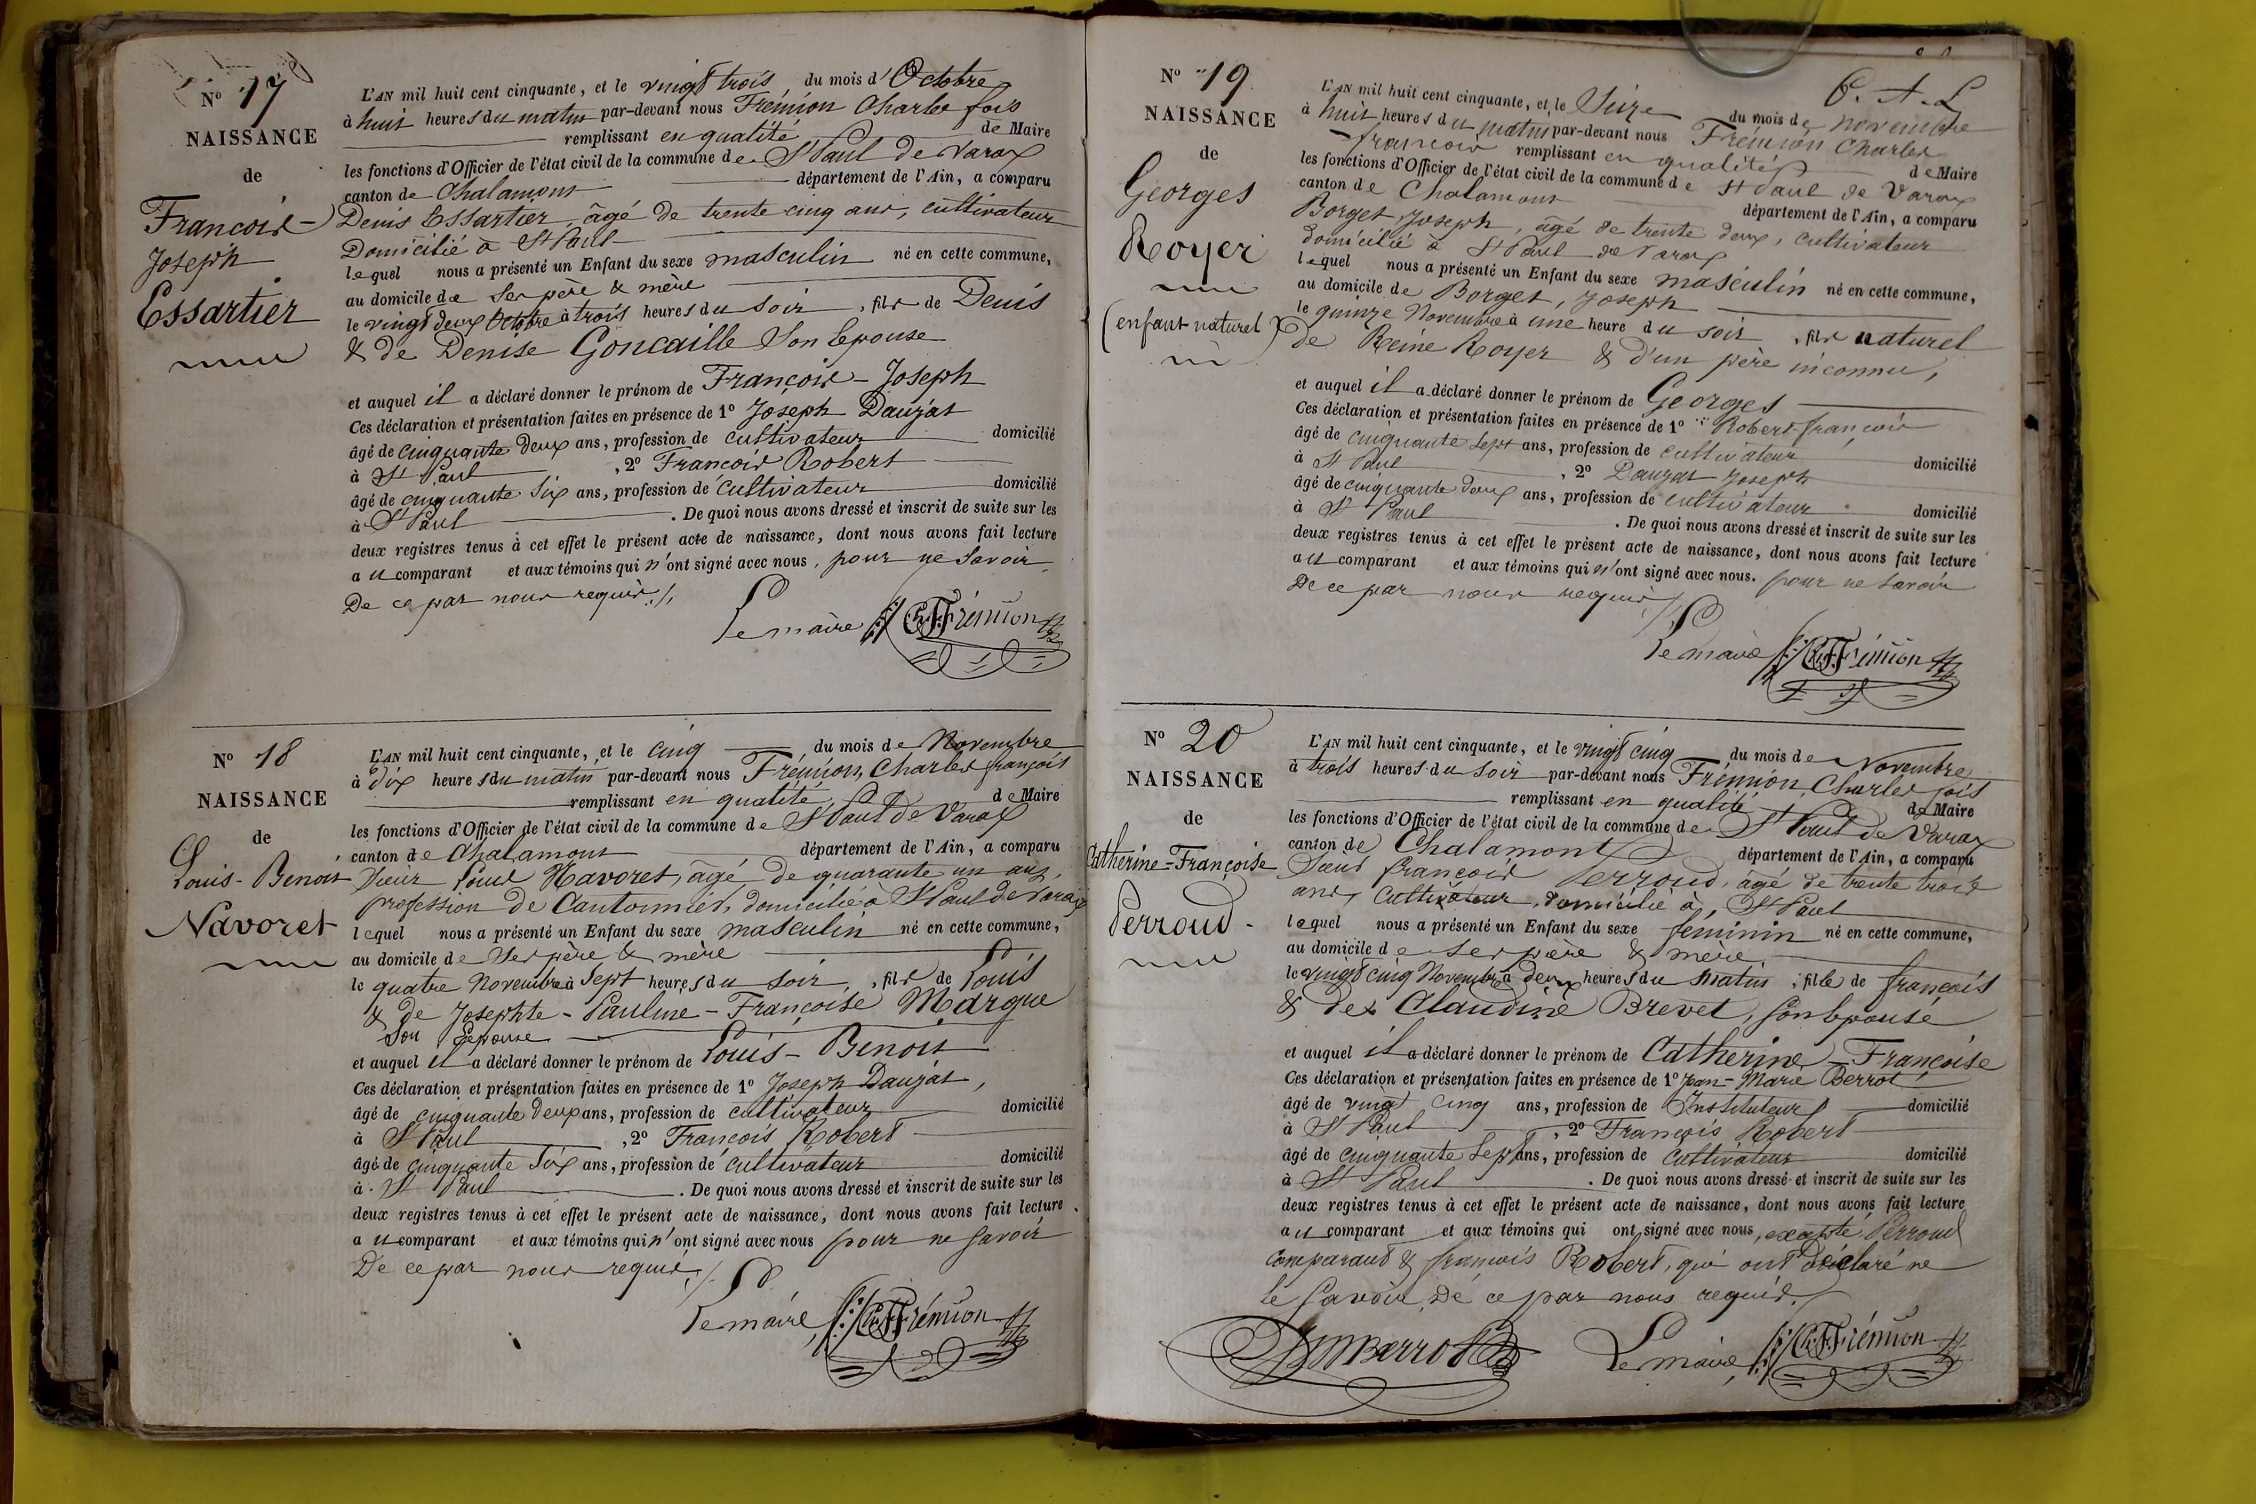 N° 17
NAISSANCE
de
François-
Joseph
Essartier
L'AN mil huit cent cinquante, et le vingt trois du mois d'Octobre
à huit heures du matin par-devant nous Frémion Charles fois
remplissant en qualité de Maire
les fonctions d'Officier de l'état civil de la commune de St Paul de Varax
canton de Chalamont département de l'Ain, a comparu
Denis Essartier, âgé de trente cinq ans, cultivateur
Domicilié à St Paul
lequel nous a présenté un Enfant du sexe masculin né en cette commune,
au domicile de ses père & mère
le vingt deux Octobre à trois heures du soir, fils de Denis
& de Denise Goncaille Son Epouse
et auquel il a déclaré donner le prénom de François-Joseph
Ces déclaration et présentation faites en présence de 1° Joseph Dauzat
âgé de cinquante deux ans, profession de cultivateur domicilié
à St Paul, 2° François Robert
âgé de cinquante six ans, profession de cultivateur domicilié
à St Paul. De quoi nous avons dressé et inscrit de suite sur les
deux registres tenus à cet effet le présent acte de naissance, dont nous avons fait lecture
au comparant et aux témoins qui n'ont signé avec nous, pour ne savoir
De ce par nous requis./.
Le maire Ch. F. Frémion
N° 18
NAISSANCE
de
Louis-Benoit
Navoret
L'AN mil huit cent cinquante, et le cinq du mois de Novembre
à dix heures du matin par-devant nous Frémion, Charles françois
remplissant en qualité de Maire
les fonctions d'Officier de l'état civil de la commune de St Paul de Varax
canton de Chalamont département de l'Ain, a comparu
Sieur Louis Navoret, âgé de quarante un ans,
profession de Cantonnier, domicilié à St Paul de Varax
lequel nous a présenté un Enfant du sexe masculin né en cette commune,
au domicile de Ses père & mère
le quatre Novembre à Sept heures du soir, fils de Louis
& de Josephte-Pauline-Françoise Margue
Son Epouse
et auquel il a déclaré donner le prénom de Louis-Benoit
Ces déclaration et présentation faites en présence de 1° Joseph Dauzat,
âgé de cinquante deux ans, profession de cultivateur domicilié
à St Paul, 2° François Robert
âgé de cinquante Six ans, profession de cultivateur domicilié
à St Paul. De quoi nous avons dressé et inscrit de suite sur les
deux registres tenus à cet effet le présent acte de naissance, dont nous avons fait lecture
au comparant et aux témoins qui n'ont signé avec nous pour ne savoir
De ce par nous requis./.
Le maire, Ch. F. Frémion
N° 19
NAISSANCE
de
Georges
Royer
(enfant naturel)
L'AN mil huit cent cinquante, et le Seize du mois de novembre
à huit heures du matin par-devant nous Frémion Charles
françois remplissant en qualité de Maire
les fonctions d'Officier de l'état civil de la commune de St Paul de Varax
canton de Chalamont département de l'Ain, a comparu
Borget Joseph, âgé de trente deux, cultivateur
domicilié à St Paul de Varax
lequel nous a présenté un Enfant du sexe masculin né en cette commune,
au domicile de Borget, Joseph
le quinze Novembre à une heure du soir, fils naturel
de Reine Royer & d'un père inconnu,
et auquel il a déclaré donner le prénom de Georges
Ces déclaration et présentation faites en présence de 1° Robert françois
âgé de cinquante Sept ans, profession de cultivateur domicilié
à St Paul, 2° Dauzat Joseph
âgé de cinquante deux ans, profession de cultivateur domicilié
à St Paul. De quoi nous avons dressé et inscrit de suite sur les
deux registres tenus à cet effet le présent acte de naissance, dont nous avons fait lecture
au comparant et aux témoins qui n'ont signé avec nous. pour ne savoir
De ce par nous requis./.
Le maire Ch. F. Frémion
N° 20
NAISSANCE
de
Catherine-Françoise
Perroud-
L'AN mil huit cent cinquante, et le vingt cinq du mois de Novembre
à trois heures du soir par-devant nous Frémion, Charles fois
remplissant en qualité de Maire
les fonctions d'Officier de l'état civil de la commune de St Paul de Varax
canton de Chalamont département de l'Ain, a comparu
Sieur françois Perroud, âgé de trente trois
ans, Cultivateur, domicilié à, St Paul
lequel nous a présenté un Enfant du sexe feminin né en cette commune,
au domicile de ses père & mère
le vingt cinq Novembre à deux heures du matin, fille de françois
& de Claudine Brevet, son Epouse
et auquel il a déclaré donner le prénom de Catherine-Françoise
Ces déclaration et présentation faites en présence de 1° Jean-Marie Berrot
âgé de vingt cinq ans, profession de Instituteur domicilié
à St Paul, 2° François Robert
âgé de cinquante Sept ans, profession de cultivateur domicilié
à St Paul. De quoi nous avons dressé et inscrit de suite sur les
deux registres tenus à cet effet le présent acte de naissance, dont nous avons fait lecture
au comparant et aux témoins qui ont signé avec nous, excepté Perroud
comparant & françois Robert, qui ont déclaré ne
le Savoir, De ce par nous requis./
JM Berrot Le maire, Ch. F. Frémion